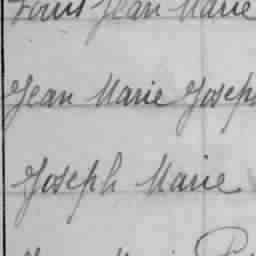 Louis Jean Marie
Jean Marie Joseph
Joseph Marie